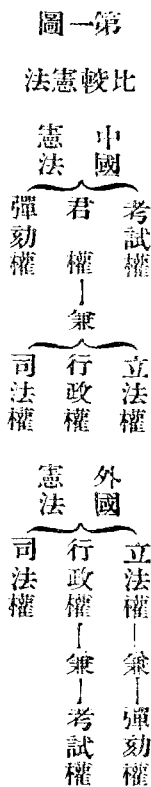 第一圖
比較憲法
中國
憲法
考試權
君權—兼
彈劾權
立法權
行政權
司法權
外國
憲法
立法權—兼—彈劾權
行政權—兼—考試權
司法權